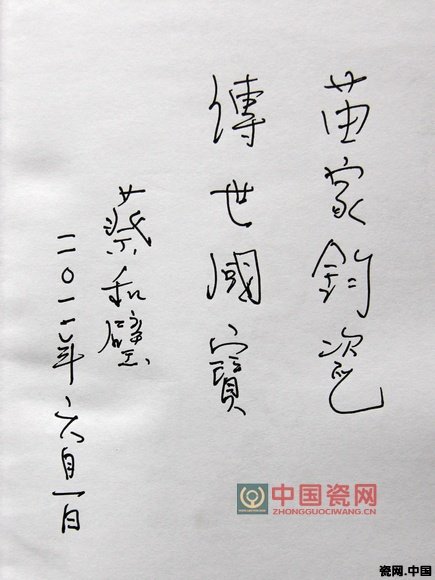 苗家鈞瓷
傳世國寶
蔡和璧
二〇一一年六月一日
中国瓷网
ZHONGGUOCIWANG.CN
瓷网.中国